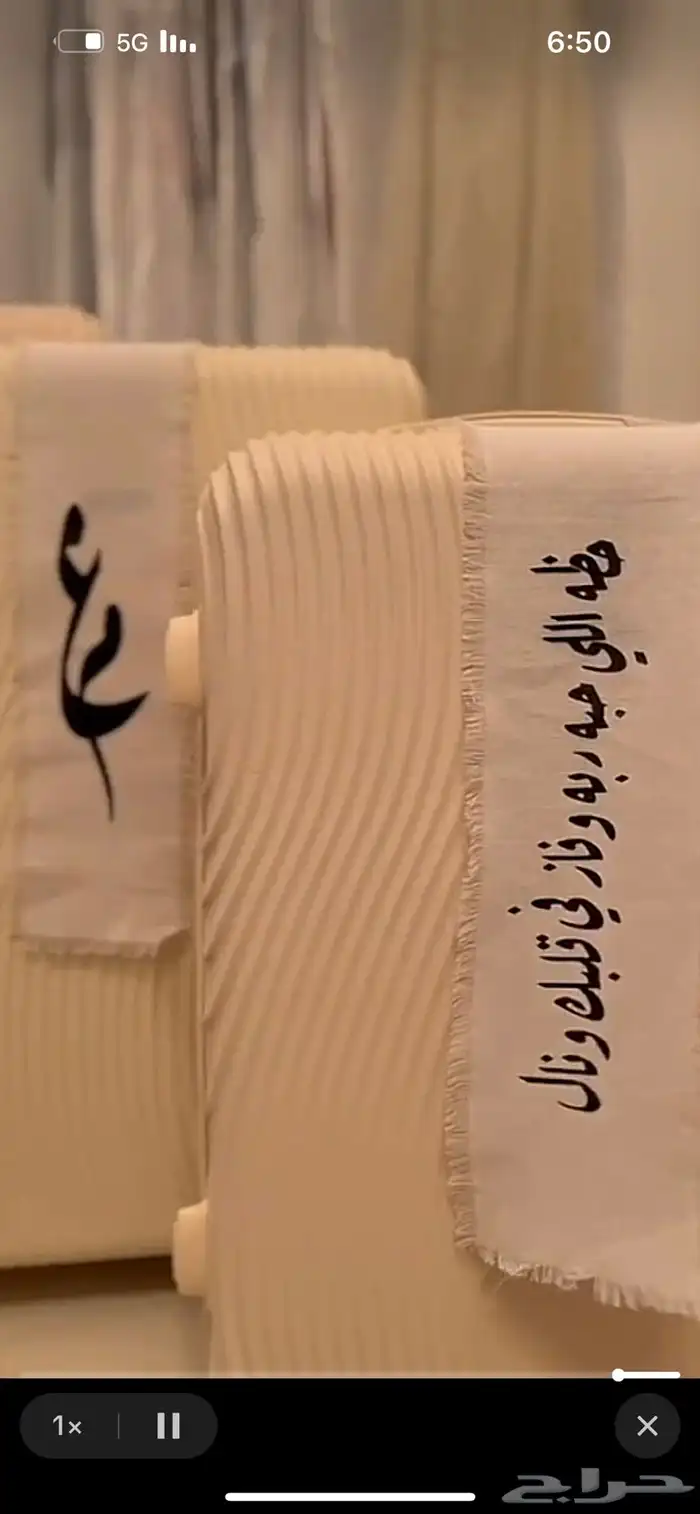 5G
6:50
حظه اللي حبه ربه و فاز في قلبك و نال
1×
حراج